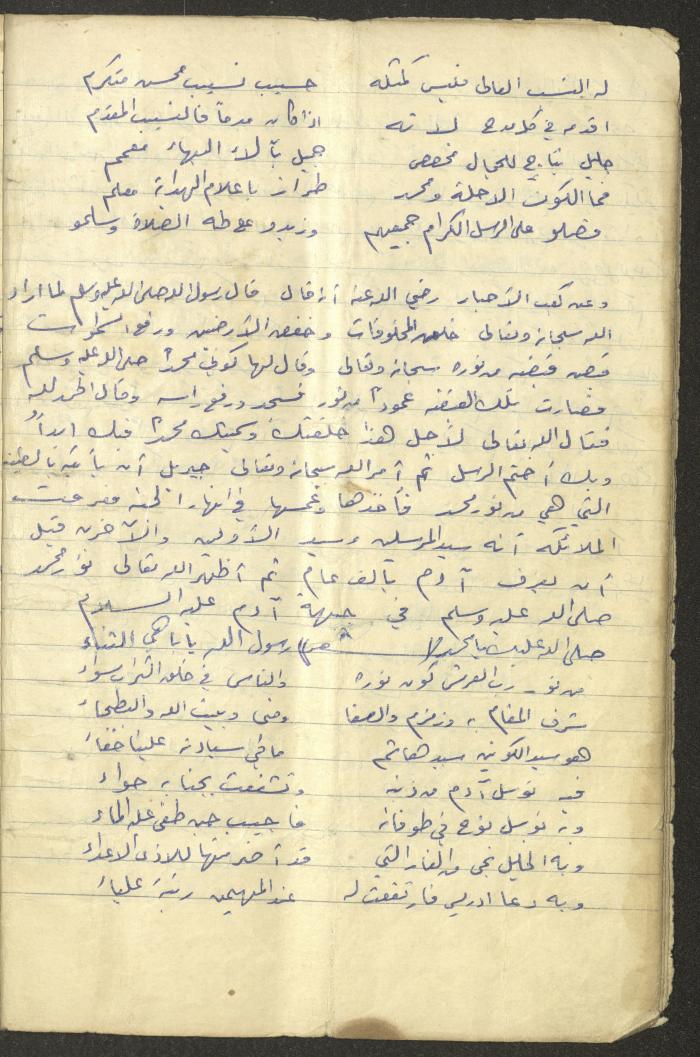 له النسب العالى فليس كمثله حسيب نسيب محسن متكرم
اقدمه في كل مدح لانه اذا كان مدحاً فالنسيب المقدم
جليل بتاج للجمال مخصص جميل بآلاء البهاء معمم
محا الكون الاحلة ومحمد طراز باعلام الهداية معلم
فصلو على الرسل الكرام جميعهم وزيدو على طه الصلاة وسلمو
وعن كعب الأحبار رضي الله عنه أنه قال قال رسول الله صلى الله عليه وسلم لما اراد
الله سبحانه وتعالى خلق المخلوقات وخفض الأرضين ورفع السموات
قبض قبضه من نوره سبحانه وتعالى وقال لها كوني محمداً صلى الله عليه وسلم
فصارت تلك القبضه عموداً من نور فسجد ورفع راسه وقال الحمد لله
فقال الله تعالى لأجل هذا خلقتك وسميتك محمداً فبك ابدأ
وبك أختم الرسل ثم أمر الله سبحانه وتعالى جبريل أن يأتيه بالطينة
التي هي من نور محمد فأخذها وغمسها في انهار الجنه فعرفت
الملائكه أنه سيد المرسلين وسيد الأولين والآخرين قبل
أن يعرف آدم بألف عام ثم أظهر الله تعالى نور محمد
صلى الله عليه وسلم في جبهة آدم عليه السلام
صلى الله عليك يا محمد رسول الله يا باهي الثناء
من نور رب العرش كون نوره والناس في خلق التراب سواء
شرف المقام به وزمزم والصفا ومنى وبيت الله والبطحاء
هو سيد الكونين سيد هاشم ما في سيادته علينا خفاء
فيه توسل آدم من ذنبه وتشفعت بجنابه حواء
وبه توسل نوح في طوفانه فاجيب حين طغى عليه الماء
وبه الخليل نجى من النار التي قد أضرمتها للاذى الاعداء
وبه دعا ادريس فارتفعت له عند المهيمن رتبة علياء